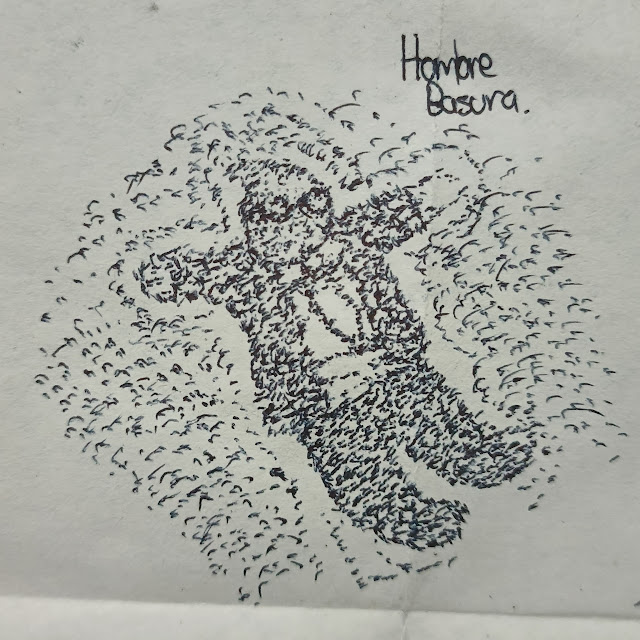 Hombre
Basura.